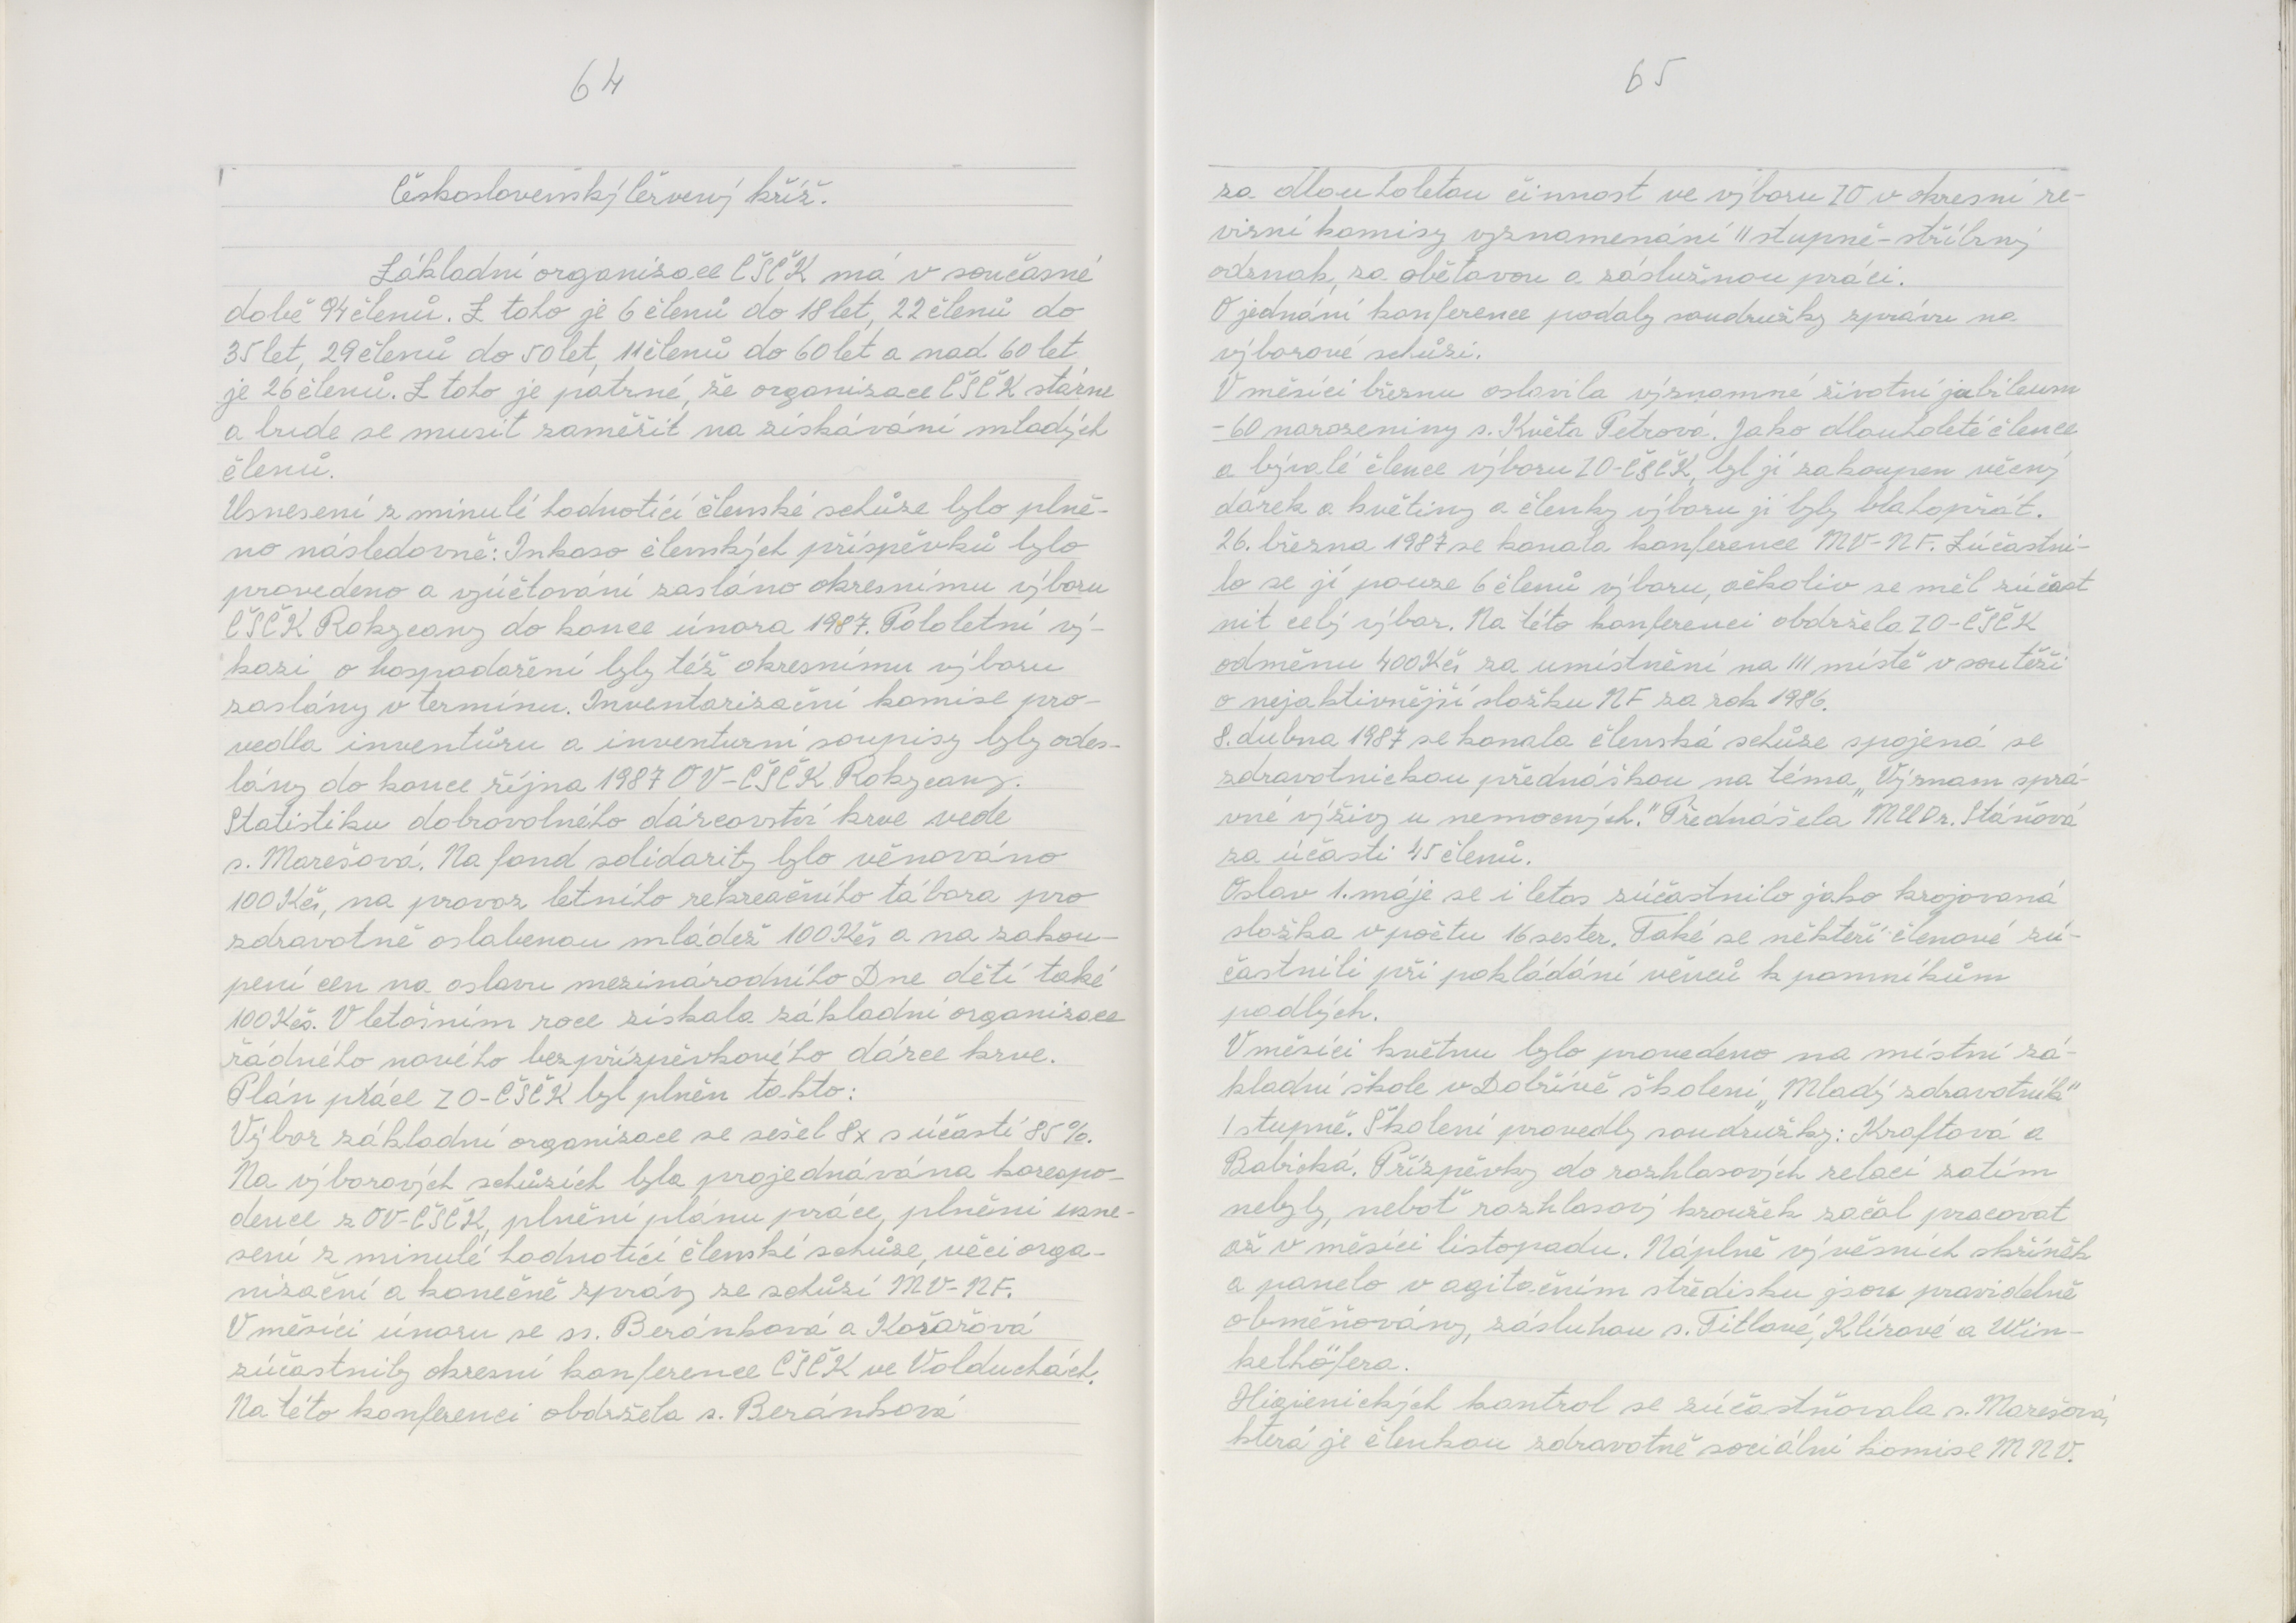 64
Československý Červený kříž.
Základní organizace ČSČK má v současné
době 94 členů. Z toho je 6 členů do 18 let, 22 členů do
35 let, 29 členů do 50 let, 11 členů do 60 let a nad 60 let
je 26 členů. Z toho je patrné, že organizace ČSČK stárne
a bude se musit zaměřit na získávání mladých
členů.
Usnesení z minulé hodnotící členské schůze bylo plně-
no následovně: Inkaso členských příspěvků bylo
provedeno a vyúčtování zasláno okresnímu výboru
ČSČK Rokycany do konce února 1987. Pololetní vý-
kazi o hospodaření byly též okresnímu výboru
zaslány v termínu. Inventarizační komise pro-
vedla inventůru a inventurní soupisy byly odes-
lány do konce října 1987 OV-ČSČK Rokycany.
Statistiku dobrovolného dárcovství krve vede
s. Marešová. Na fond solidarity bylo věnováno
100 Kčs, na provoz letního rekreačního tábora pro
zdravotně oslabenou mládež 100 Kčs a na zakou-
pení cen na oslavu mezinárodního Dne dětí také
100 Kčs. V letošním roce získala základní organizace
řádného nového bezpříspěvkového dárce krve.
Plán práce ZO-ČSČK byl plněn takto:
Výbor základní organizace se sešel 8x s účastí 85%.
Na výborových schůzích byla projednávána korespo-
dence z OV-ČSČK, plnění plánu práce, plnění usne-
sení z minulé hodnotící členské schůze, věci orga-
nizační a konečně zprávy ze schůzí MV-NF.
V měsíci únoru se ss. Beránková a Kořařová
zúčastnily okresní konference ČSČK ve Volduchách.
Na této konferenci obdržela s. Beránková
65
za dlouholetou činnost ve výboru ZO v okresní re-
vizní komisy vyznamenání II stupně - stříbrný
odznak, za obětavou a záslužnou práci.
O jednání konference podaly soudružky zprávu na
výborové schůzi.
V měsíci březnu oslavila významné životní jubileum
- 60 narozeniny s. Květa Petrová. Jako dlouholeté člence
a bývalé člence výboru ZO-ČSČK, byl jí zakoupen věcný
dárek a květiny a členky výboru jí byly blahopřát.
26. března 1987 se konala konference MV-NF. Zúčastni-
lo se jí pouze 6 členů výboru, ačkoliv se měl zúčast
nit celý výbor. Na této konferenci obdržela ZO-ČSČK
odměnu 400 Kčs za umístnění na III místě v soutěži
o nejaktivnější složku NF za rok 1986.
8. dubna 1987 se konala členská schůze spojená se
zdravotnickou přednáškou na téma „Význam sprá-
vné výživy u nemocných." Přednášela MUDr. Stáňová
za účasti 45 členů.
Oslav 1. máje se i letos zúčastnilo jako krojovaná
složka v počtu 16 sester. Také se někteří členové zú-
častnili při pokládání věnců k pomníkům
padlých.
V měsíci květnu bylo provedeno na místní zá-
kladní škole v Dobřívě školení „Mladý zdravotník"
I stupně. Školení provedly soudružky: Kraftová a
Babická. Příspěvky do rozhlasových relací zatím
nebyly, neboť rozhlasový kroužek začal pracovat
až v měsíci listopadu. Náplně vývěsních skříněk
a panelo v agitačním středisku jsou pravidelně
obměňovány, zásluhou s. Titlové, Klírové a Win-
kelhöfera.
Higienických kontrol se zúčastňovala s. Marešová,
která je členkou zdravotně sociální komise MNV.